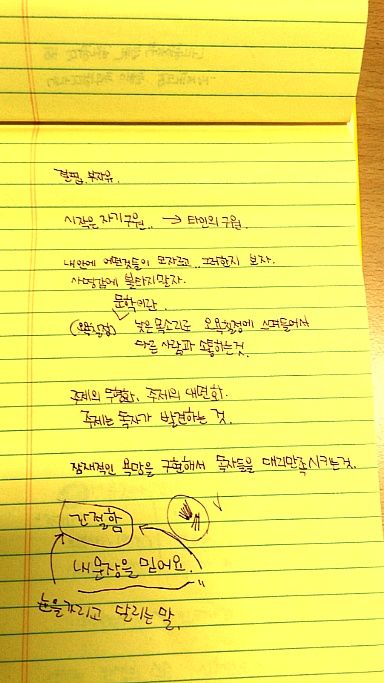 결핍, 부자유.
시작은 자기구원.. → 타인의 구원.
내안에 어떤것들이 모자르고.. 그러한지 보자.
사명감에 불타지말자.
문학이란
(욕칠정) 낮은 목소리로 오욕칠정에 스며들어서
다른 사람과 소통하는것.
주제의 무형화, 주제의 내면화.
주제는 독자가 발견하는 것.
잠재적인 욕망을 구현해서 독자들을 대리만족시키는것.
간절함
내 문장을 믿어요.
눈을 가리고 달리는 말.